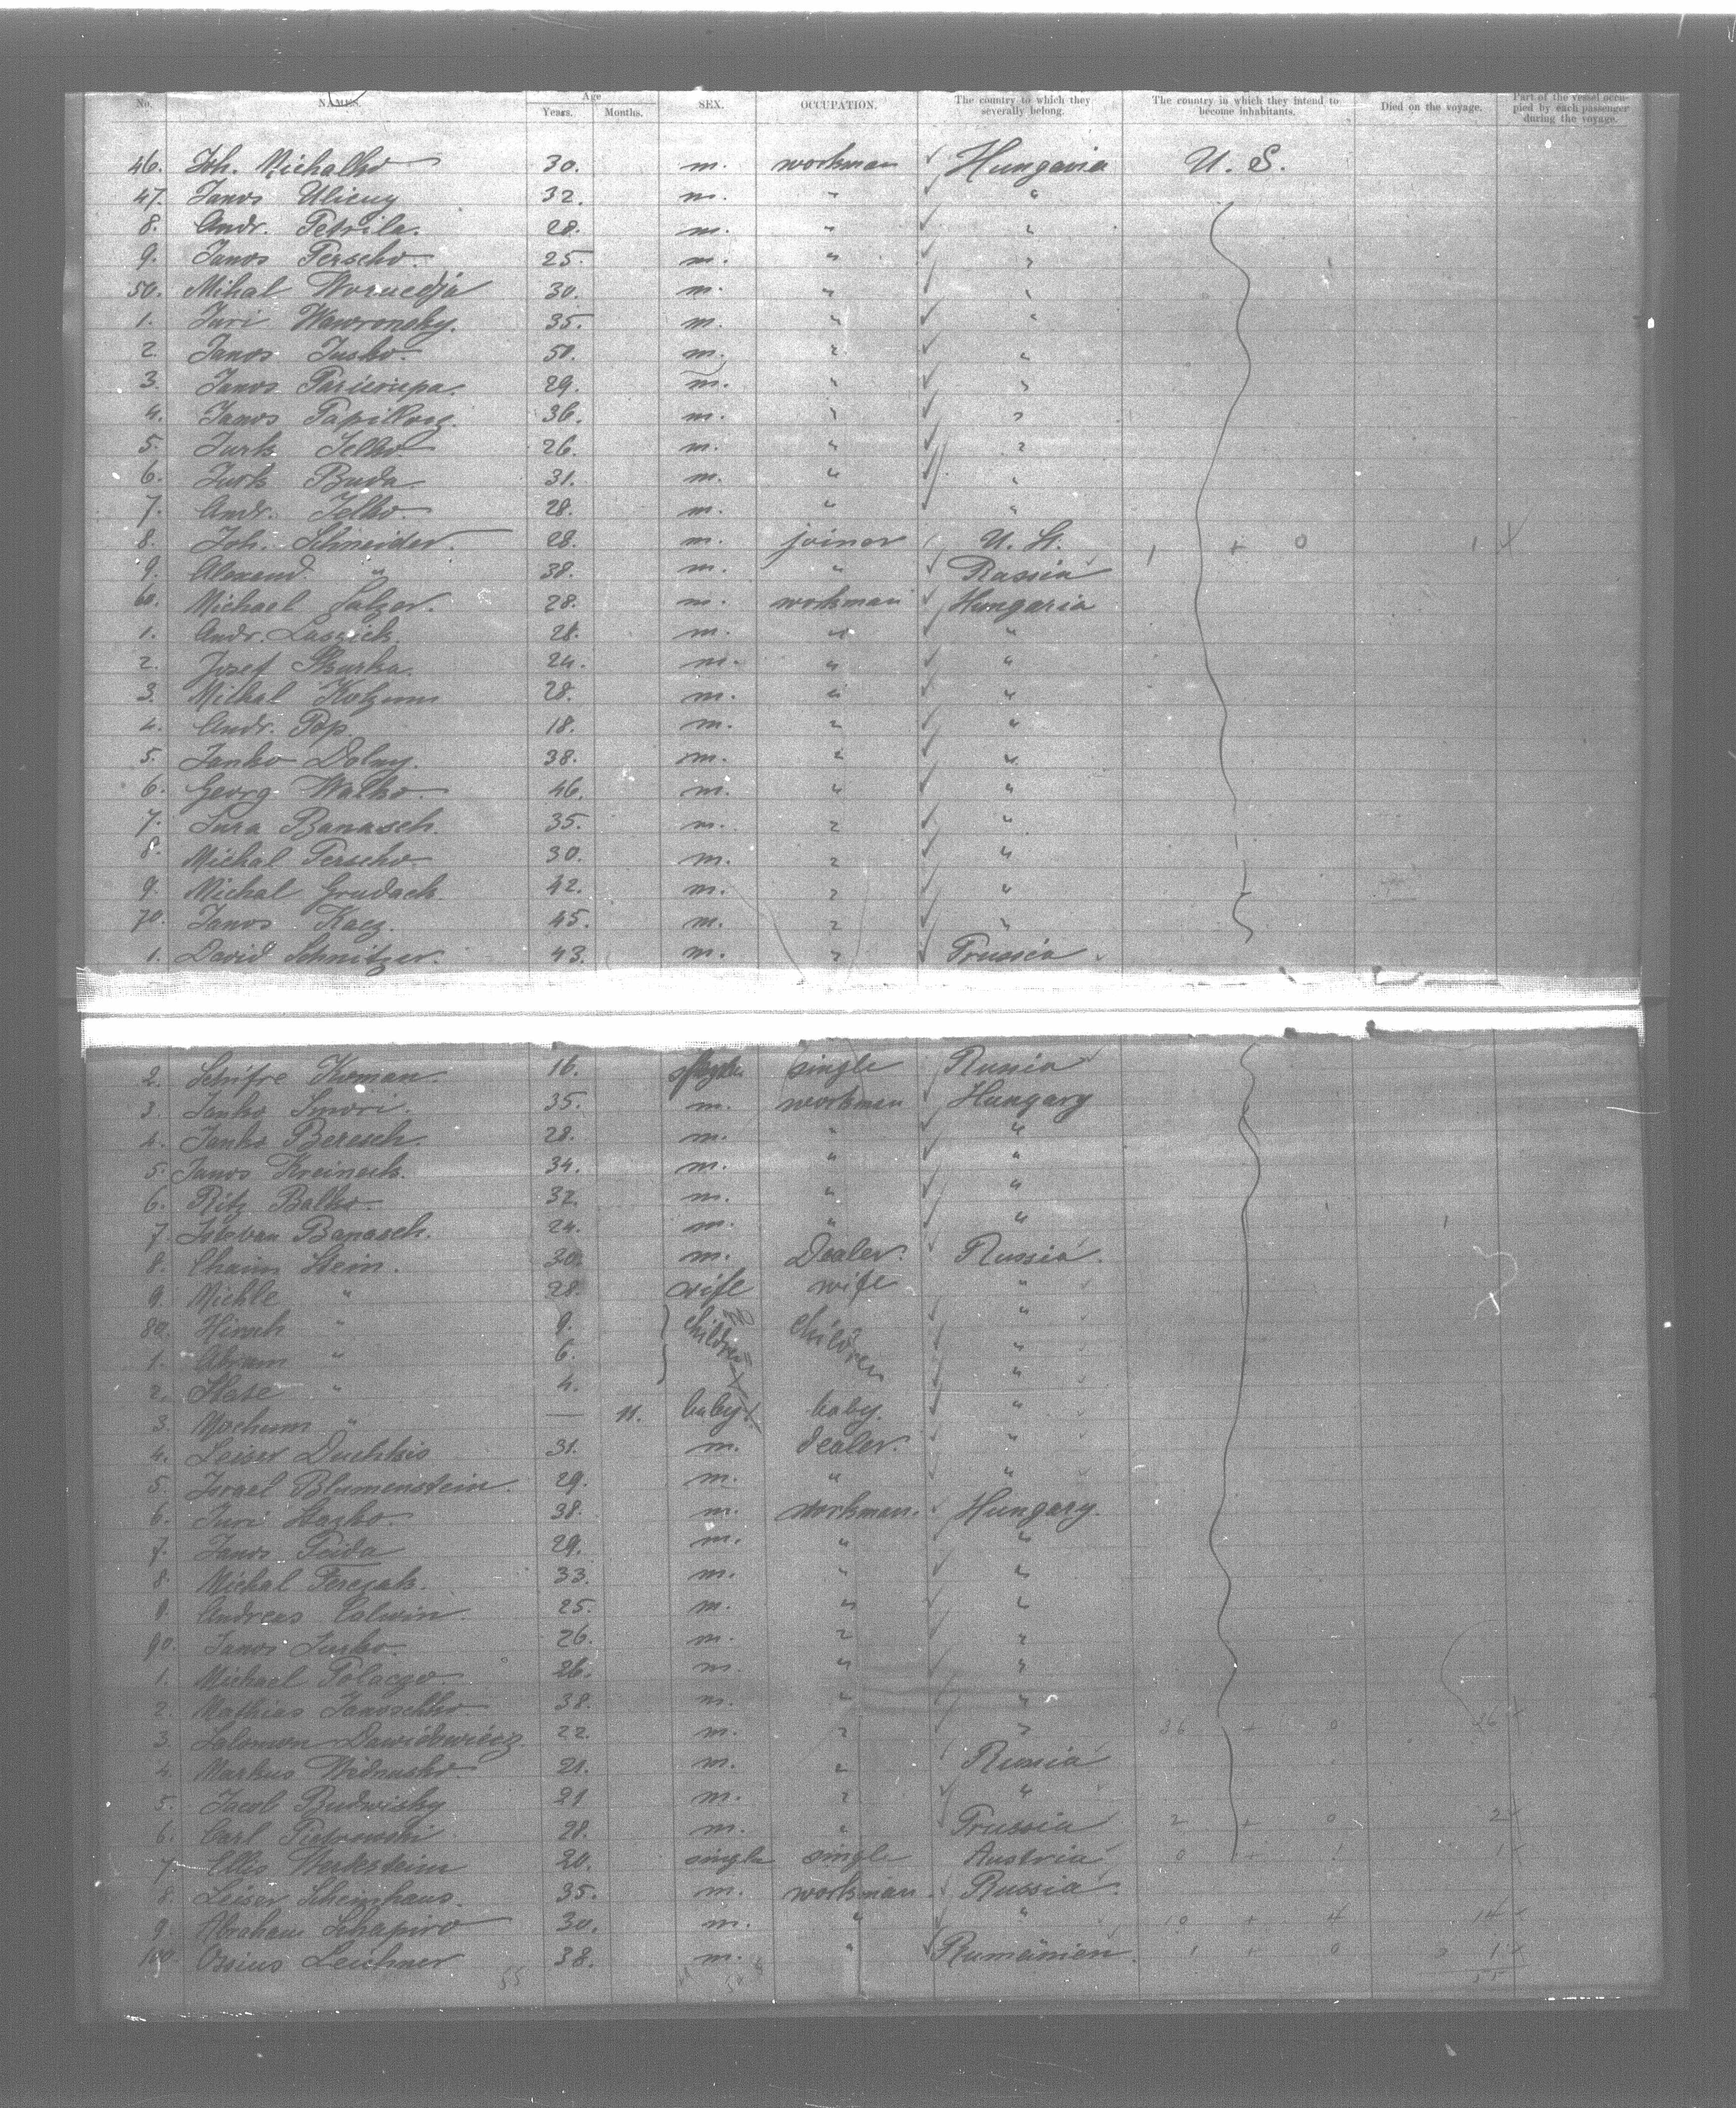 No. NAMES. Age Years. Months. SEX. OCCUPATION. The country to which they severally belong. The country in which they intend to become inhabitants. Died on the voyage. Part of the vessel occupied by each passenger during the voyage.
46. Joh. Michalko 30. m. workman Hungaria U. S.
47. Janos Ulicny 32. m. " "
8. Andr. Petrila. 28. m. " "
9. Janos Ferscho. 25 m. " "
50. Mihal 30. m. " "
1. Juri Wawronsky. 35. m. " "
2. Janos Jusko. 50. m. " "
3. Janos 29. m. " "
4. Janos 36. m. " "
5. Jurk Selko 26. m. " "
6. Jurk Buda 31. m. " "
7. Andr. Jelko. 28. m. " "
8. Joh. Schneider. 28. m. joiner U. St. 1 + 0 1
9. Alexand. " 38. m. " Russia
60. Michael Salzer. 28. m. workman Hungaria
1. Andr. Lassick. 28. m. " "
2. Josef Skurka. 24. m. " "
3. Mihal 28. m. " "
4. Andr. Pop 18. m. " "
5. Janko Dolny. 38. m. " "
6. Georg Walko. 46. m. " "
7. Jura Banasch. 35. m. " "
8. Michal Ferscho 30. m. " "
9. Michal Grudack. 42. m. " "
70. Janos Kacz. 45. m. " "
1. David Schnitzer. 43. m. " Prussia
2. Schifre Koman. 16. single Russia
3. Janko Smori. 35. m. workman Hungary
4. Janko Beresch. 28. m. " "
5. Janos Kreineck. 34. m. " "
6. Ritz Balko. 32. m. " "
7. Istevan Banasch. 24. m. " "
8. Chaim Stein. 30. m. Dealer. Russia.
9. Michle " 28. wife wife "
80. Hirsch " 9. children children "
1. Abram " 6. "
2. Slate " 4. "
3. Mochum " — 11. baby baby. "
4. Leiser Duchkis 31. m. dealer. "
5. Israel Blumenstein. 29. m. " "
6. Juri Stazko. 38. m. workman. Hungary.
7. Janos Feida 29. m. " "
8. Michal Ferezak. 33. m. " "
9. Andreas Colwin. 25. m. " "
90. Janos Jurko. 26. m. " "
1. Michael Polaczo. 26. m. " "
2. Mathias Janoschko 38. m. " "
3. Salomon Dawidowicz. 22. m. " " 36 + 0 36
4. Markus 21. m. " Russia
5. Jacob Budwisky 21 m. " "
6. Carl Piotrowski 28. m. " Prussia 2 + 0 2
7. Ellis Werkstein 20. single single Austria 0 + 1 1
8. Leiser Scheinhaus. 35. m. workman. Russia.
9. Abraham Schapiro 30. m. " " 10 + 4 14
100. Ossius Leichner 38. m. " Rumänien. 1 + 0 1
55 55